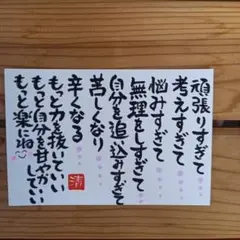 頑張りすぎて
考えすぎて
悩みすぎて
無理をしすぎて
自分を追い込みすぎて
苦しくなり
辛くなる
もっと力を抜いていい
もっと自分を甘やかしていい
もっと楽にね
清